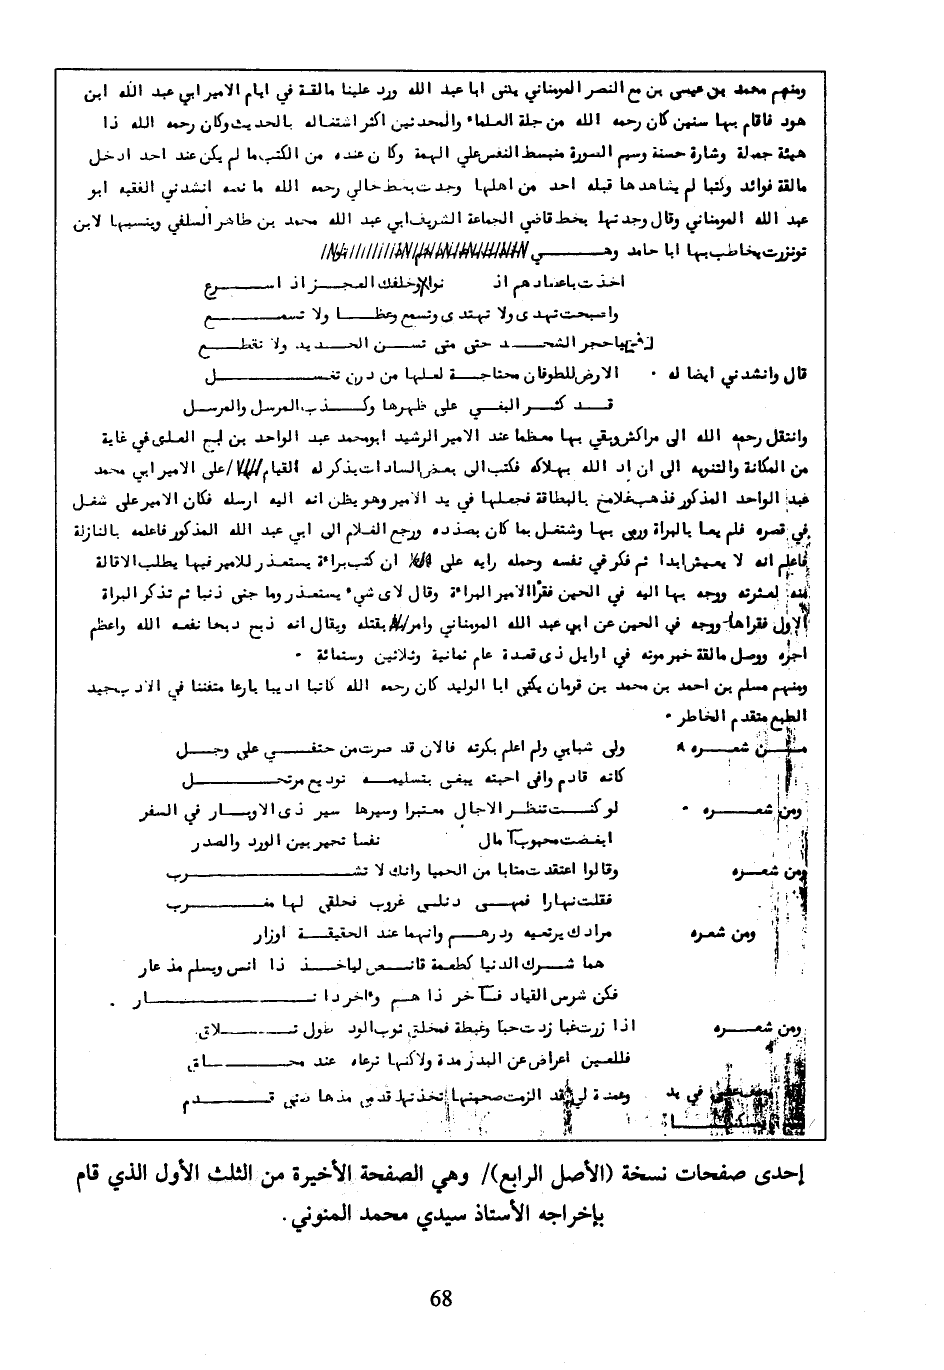 ومنهم محمد بن عيسى بن مع النصر المومناني يكنى ابا عبد الله ورد علينا مالقة في ايام الامير ابي عبد الله ابن
هود فاقام بها سنين كان رحمه الله من جلة العلماء والمحدثين اكثر اشتغاله بالحديث وكان رحمه الله ذا
هيئة جميلة وشارة حسنة وسيم الصورة منبسط النفس علي الهمة وكان عنده من الكتب ما لم يكن عند احد ادخل
مالقة فوائد وكتبا لم يشاهدها قبله احد من اهلها وجدت بخط خالي رحمه الله ما نصه انشدني الفقيه ابو
عبد الله المومناني وقال وجدتها بخط قاضي الجماعة الشريف ابي عبد الله محمد بن طاهر السلفي وينسبها لابن
تونزرت يخاطب بها ابا حامد وهـــــي
اخذت باعضادهم اذ نوالا وخلفك العجـــز اذ اســـرع
واصبحت تهدى ولا تهتدى وتسمع وعظـــا ولا تسمـــــع
فيا حجر الشحـــذ حتى متى تســـن الحـــديد ولا تقطـــع
قال وانشدني ايضا له . الارض للطوفان محتاجـــة لعلها من درن تغســـــل
قـــد كثـــر البغـــي على ظهرها وكـــذب المرسل والمرسل
وانتقل رحمه الله الى مراكش وبقي بها معظما عند الامير الرشيد ابو محمد عبد الواحد بن العلى في غاية
من المكانة والتنويه الى ان اد الله بهلاكه فكتب الى بعض السادات يذكر له القيام / على الامير ابي محمد
عبد الواحد المذكور فذهب غلامه بالبطاقة فجعلها في يد الامير وهو يظن انه اليه ارسله فكان الامير على شغل
في قصره فلم يعبا بالبراة ورمى بها وشتغل بما كان بصدده ورجع الغلام الى ابي عبد الله المذكور فاعلمه بالنازلة
فاعلم انه لا يعيش ابدا ثم فكر في نفسه وحمله رايه على ان كتب براءة يستعذر للامير فيها يطلب الاقالة
منه لعثرته ووجه بها اليه في الحين فقرا الامير البراءة وقال لاى شيء يستعذر وما جنى ذنبا ثم تذكر البراة
الاول فقراها ووجه في الحين عن ابي عبد الله المومناني وامر بقتله ويقال انه ذبح ذبحا نفعه الله واعظم
اجره ووصل مالقة خبر موته في اوايل ذى قعدة عام ثمانية وثلاثين وستمائة .
ومنهم مسلم بن احمد بن محمد بن قزمان يكنى ابا الوليد كان رحمه الله كاتبا اديبا بارعا متفننا في الادب جيد
الطبع متقدم الخاطر .
مـــن شعـــره ولى شبابي ولم اعلم بكرته فالان قد صرت من حتفـــي على وجـــل
كانه قادم وافى احبته يبغى بتسليمـــه توديع مرتحـــــل
ومن شعـــــره . لو كنـــت تنظـــر الاجال معتبرا وسيرها سير ذى الاوبـــار في السفر
ابغضت محبوب آمال نفسا تحير بين الورد والصدر
ومن شعـــره وقالوا اعتقدت متابا من الحميا وانك لا تشـــــــرب
فقلت نهارا فهمـــى دنـــى غروب فحلقي لها مغـــــرب
ومن شعره مرادك يرتعيه ودرهـــم وانهما عند الحقيقـــة اوزار
هما شـــرك الدنيا كطعمة قانـــص لياخـــذ ذا انس ويسلم مذعار
فكن شرس القياد فـــآخر ذا هـــم وءاخر دا نـــــــار .
ومن شعـــــره اذا زرت غبا زدت حبا وغبطة فمخلق ثوب الود طول تـــــلاق
فللعين اعراض عن البدر مدة ولاكنها ترعاه عند محـــــاق
في يد قد الزمت تخذتها قدمي قـــــدم
إحدى صفحات نسخة (الأصل الرابع)/ وهي الصفحة الأخيرة من الثلث الأول الذي قام
بإخراجه الأستاذ سيدي محمد المنوني.
68